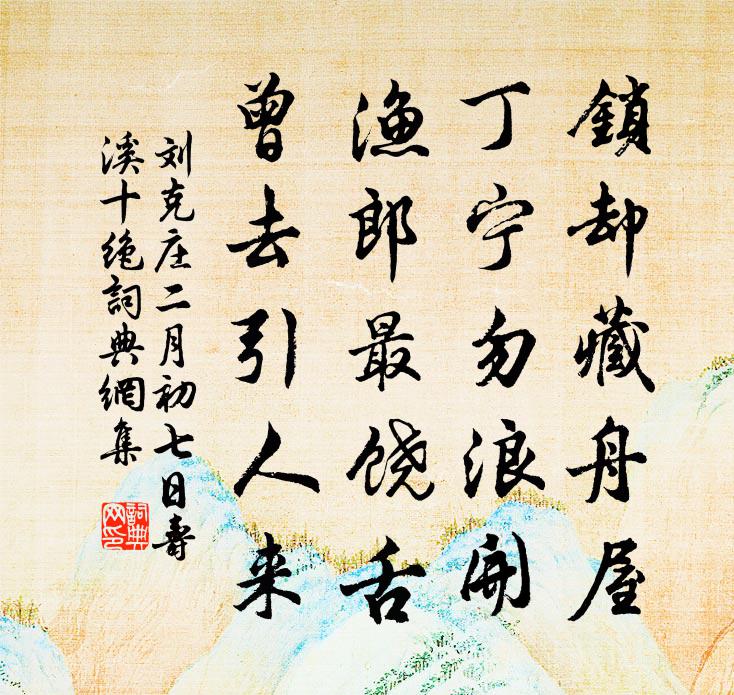 鎖却藏舟屋
丁宁勿浪開
漁郎最饶舌
曾去引人来
刘克庄二月初七日壽
溪十绝詞典網集
詞典网印